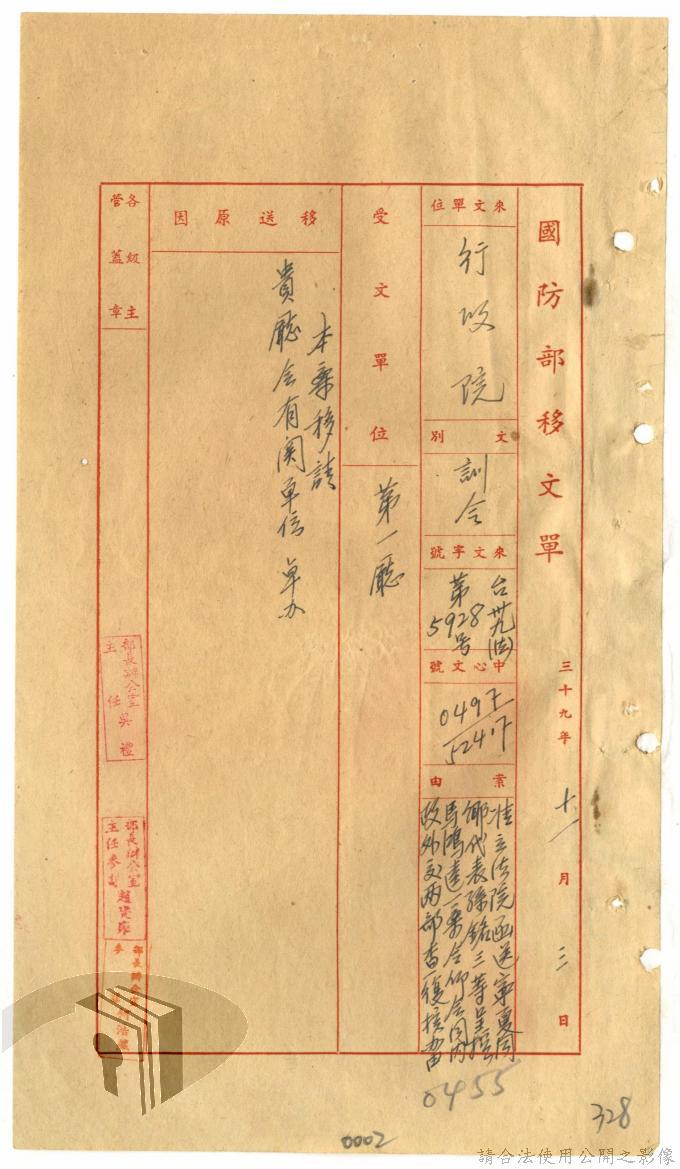 國防部移文單
三十九年十一月三日
來文單位
行政院
文別
訓令
來文字號
台卅九(法)
第5928号
中心文號
案由
准立法院函送寧夏同
鄉代表孫銘三等呈控
馬鴻逵一案令仰会同內
政外交两部查復核办
受文單位
第一廳
移送原因
本案移請
貴廳会有関單位卓办
各級主
管蓋章
部長辦公室
主任吳禮
部長辦公室
主任參
部長辦公室
參
0455
328
0002
請合法使用公開之影像